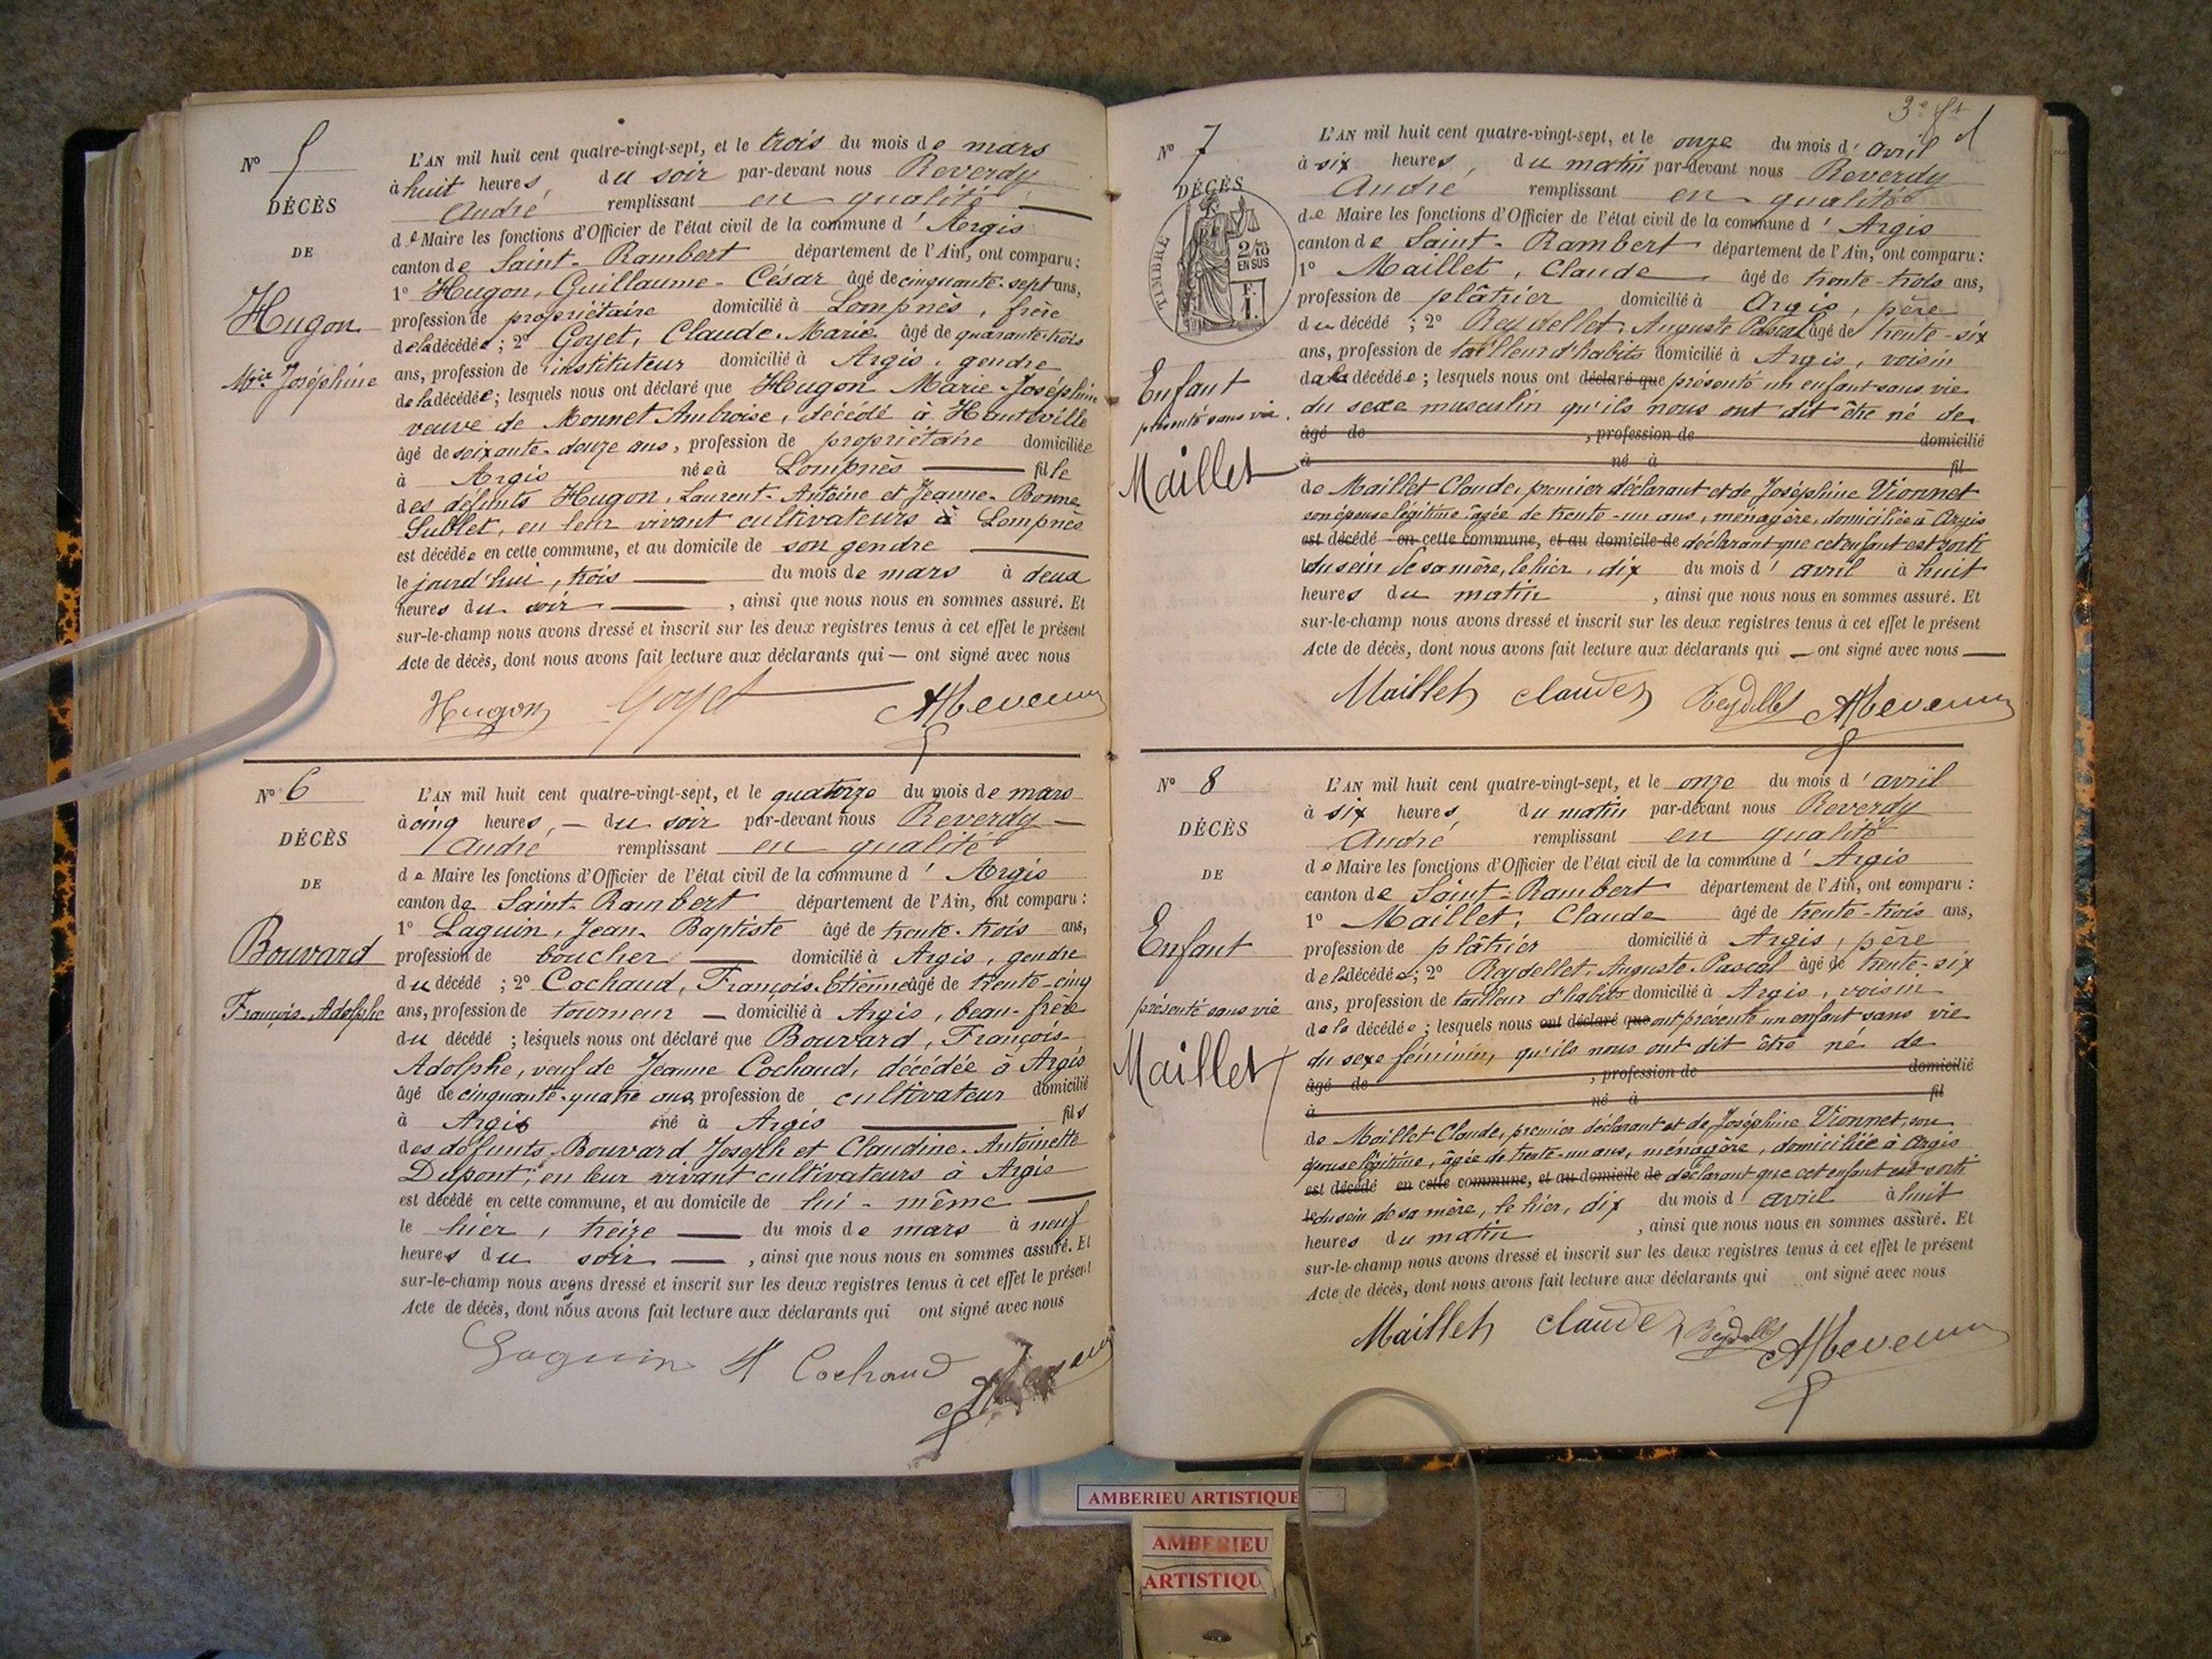 N° 5
DÉCÈS
DE
Hugon
Mie Joséphine
L'AN mil huit cent quatre-vingt-sept, et le trois du mois de mars
à huit heures, du soir par-devant nous Reverdy
André remplissant en qualité
de Maire les fonctions d'Officier de l'état civil de la commune d'Argis
canton de Saint-Rambert département de l'Ain, ont comparu :
1° Hugon, Guillaume-César âgé de cinquante-sept ans,
profession de propriétaire domicilié à Lompnès, frère
de la décédée ; 2° Goyet, Claude-Marie âgé de quarante-trois
ans, profession de instituteur domicilié à Argis, gendre
de la décédée ; lesquels nous ont déclaré que Hugon Marie-Joséphine
veuve de Monnet Ambroise, décédé à Hauteville
âgé de soixante-douze ans, profession de propriétaire domiciliée
à Argis née à Lompnès fille
des défunts Hugon, Laurent-Antoine et Jeanne-Bonne
Sublet, en leur vivant cultivateurs à Lompnès
est décédée en cette commune, et au domicile de son gendre
le jourd'hui, trois du mois de mars à deux
heures du soir, ainsi que nous nous en sommes assuré. Et
sur-le-champ nous avons dressé et inscrit sur les deux registres tenus à cet effet le présent
Acte de décès, dont nous avons fait lecture aux déclarants qui — ont signé avec nous
Hugon Goyet
N° 6
DÉCÈS
DE
Bouvard
François-Adolphe
L'AN mil huit cent quatre-vingt-sept, et le quatorze du mois de mars
à cinq heures, — du soir par-devant nous Reverdy —
André remplissant en qualité
de Maire les fonctions d'Officier de l'état civil de la commune d'Argis
canton de Saint-Rambert département de l'Ain, ont comparu :
1° Laguin, Jean-Baptiste âgé de trente-trois ans,
profession de boucher — domicilié à Argis, gendre
du décédé ; 2° Cochaud, François-Etienne âgé de trente-cinq
ans, profession de tourneur — domicilié à Argis, beau-frère
du décédé ; lesquels nous ont déclaré que Bouvard, François-
Adolphe, veuf de Jeanne Cochaud, décédée à Argis
âgé de cinquante-quatre ans, profession de cultivateur domicilié
à Argis né à Argis fils
des défunts Bouvard Joseph et Claudine-Antoinette
Dupont, en leur vivant cultivateurs à Argis
est décédé en cette commune, et au domicile de lui-même —
le hier, treize — du mois de mars à neuf
heures du soir —, ainsi que nous nous en sommes assuré. Et
sur-le-champ nous avons dressé et inscrit sur les deux registres tenus à cet effet le présent
Acte de décès, dont nous avons fait lecture aux déclarants qui ont signé avec nous
Cochaud
N° 7
DÉCÈS
TIMBRE
2/10
EN SUS
Enfant
présenté sans vie
Maillet
L'AN mil huit cent quatre-vingt-sept, et le onze du mois d'avril
à six heures, du matin par-devant nous Reverdy
André remplissant en qualité
de Maire les fonctions d'Officier de l'état civil de la commune d'Argis
canton de Saint-Rambert département de l'Ain, ont comparu :
1° Maillet, Claude âgé de trente-trois ans,
profession de plâtrier domicilié à Argis, père
du décédé ; 2° Reydellet, Auguste Pascal âgé de trente-six
ans, profession de tailleur d'habits domicilié à Argis, voisin
de la décédée ; lesquels nous ont déclaré que présenté un enfant sans vie
du sexe masculin qu'ils nous ont dit être né de
âgé de , profession de domicilié
à né à fil
de Maillet Claude, premier déclarant et de Joséphine Vionnet
son épouse légitime âgée de trente-un ans, ménagère, domiciliée à Argis
est décédé en cette commune, et au domicile de déclarant que cet enfant est sorti
le du sein de sa mère, le hier, dix du mois d'avril à huit
heures du matin, ainsi que nous nous en sommes assuré. Et
sur-le-champ nous avons dressé et inscrit sur les deux registres tenus à cet effet le présent
Acte de décès, dont nous avons fait lecture aux déclarants qui — ont signé avec nous —
Maillet claude Reydellet
N° 8
DÉCÈS
DE
Enfant
présenté sans vie
Maillet
L'AN mil huit cent quatre-vingt-sept, et le onze du mois d'avril
à six heures, du matin par-devant nous Reverdy
André remplissant en qualité
de Maire les fonctions d'Officier de l'état civil de la commune d'Argis
canton de Saint-Rambert département de l'Ain, ont comparu :
1° Maillet, Claude âgé de trente-trois ans,
profession de plâtrier domicilié à Argis, père
de la décédée ; 2° Reydellet, Auguste-Pascal âgé de trente-six
ans, profession de tailleur d'habits domicilié à Argis, voisin
de la décédée ; lesquels nous ont déclaré que ont présenté un enfant sans vie
du sexe féminin, qu'ils nous ont dit être né de
âgé de , profession de domicilié
à né à fil
de Maillet Claude, premier déclarant et de Joséphine Vionnet, son
épouse légitime, âgée de trente-un ans, ménagère, domiciliée à Argis
est décédé en cette commune, et au domicile de déclarant que cet enfant est sorti
le du sein de sa mère, le hier, dix du mois d'avril à huit
heures du matin, ainsi que nous nous en sommes assuré. Et
sur-le-champ nous avons dressé et inscrit sur les deux registres tenus à cet effet le présent
Acte de décès, dont nous avons fait lecture aux déclarants qui ont signé avec nous
Maillet claude Reydellet
AMBERIEU ARTISTIQUE
AMBERIEU
ARTISTIQU